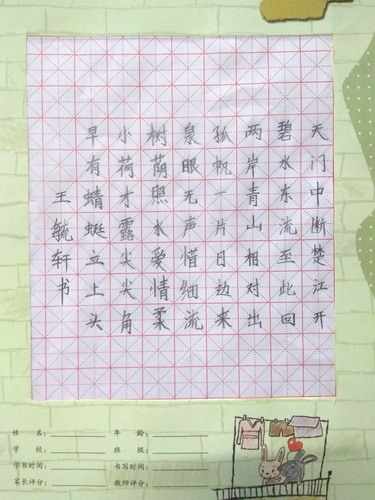 天门中断楚江开
碧水东流至此回
两岸青山相对出
孤帆一片日边来
泉眼无声惜细流
树荫照水爱情柔
小荷才露尖尖角
早有蜻蜓立上头
王毓轩书
姓名：
年龄：
学校：
班级：
学书时间：
书写时间：
家长评分：
教师评分：